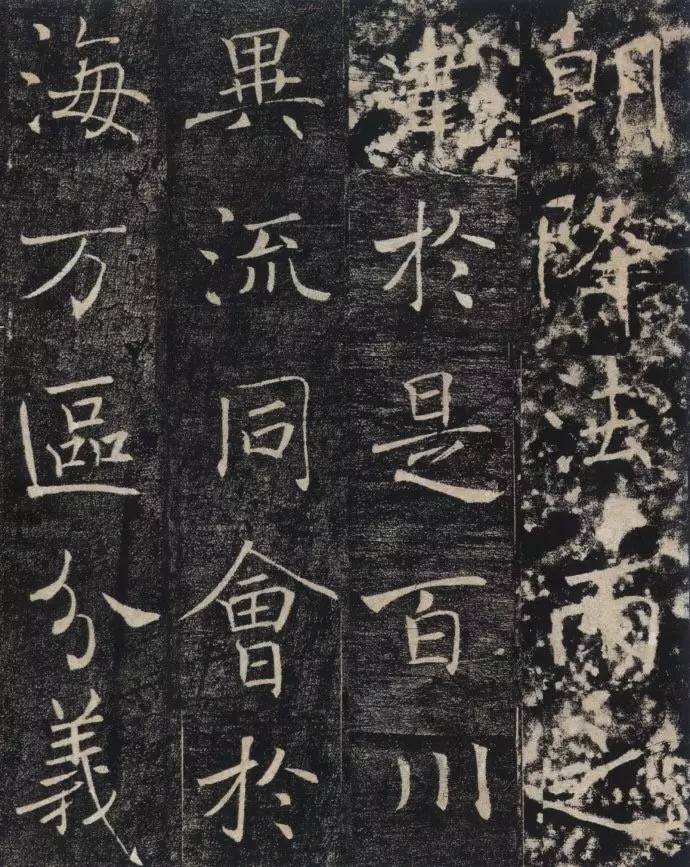 朝降法雨之
於是百川
異流同會於
海万區分義